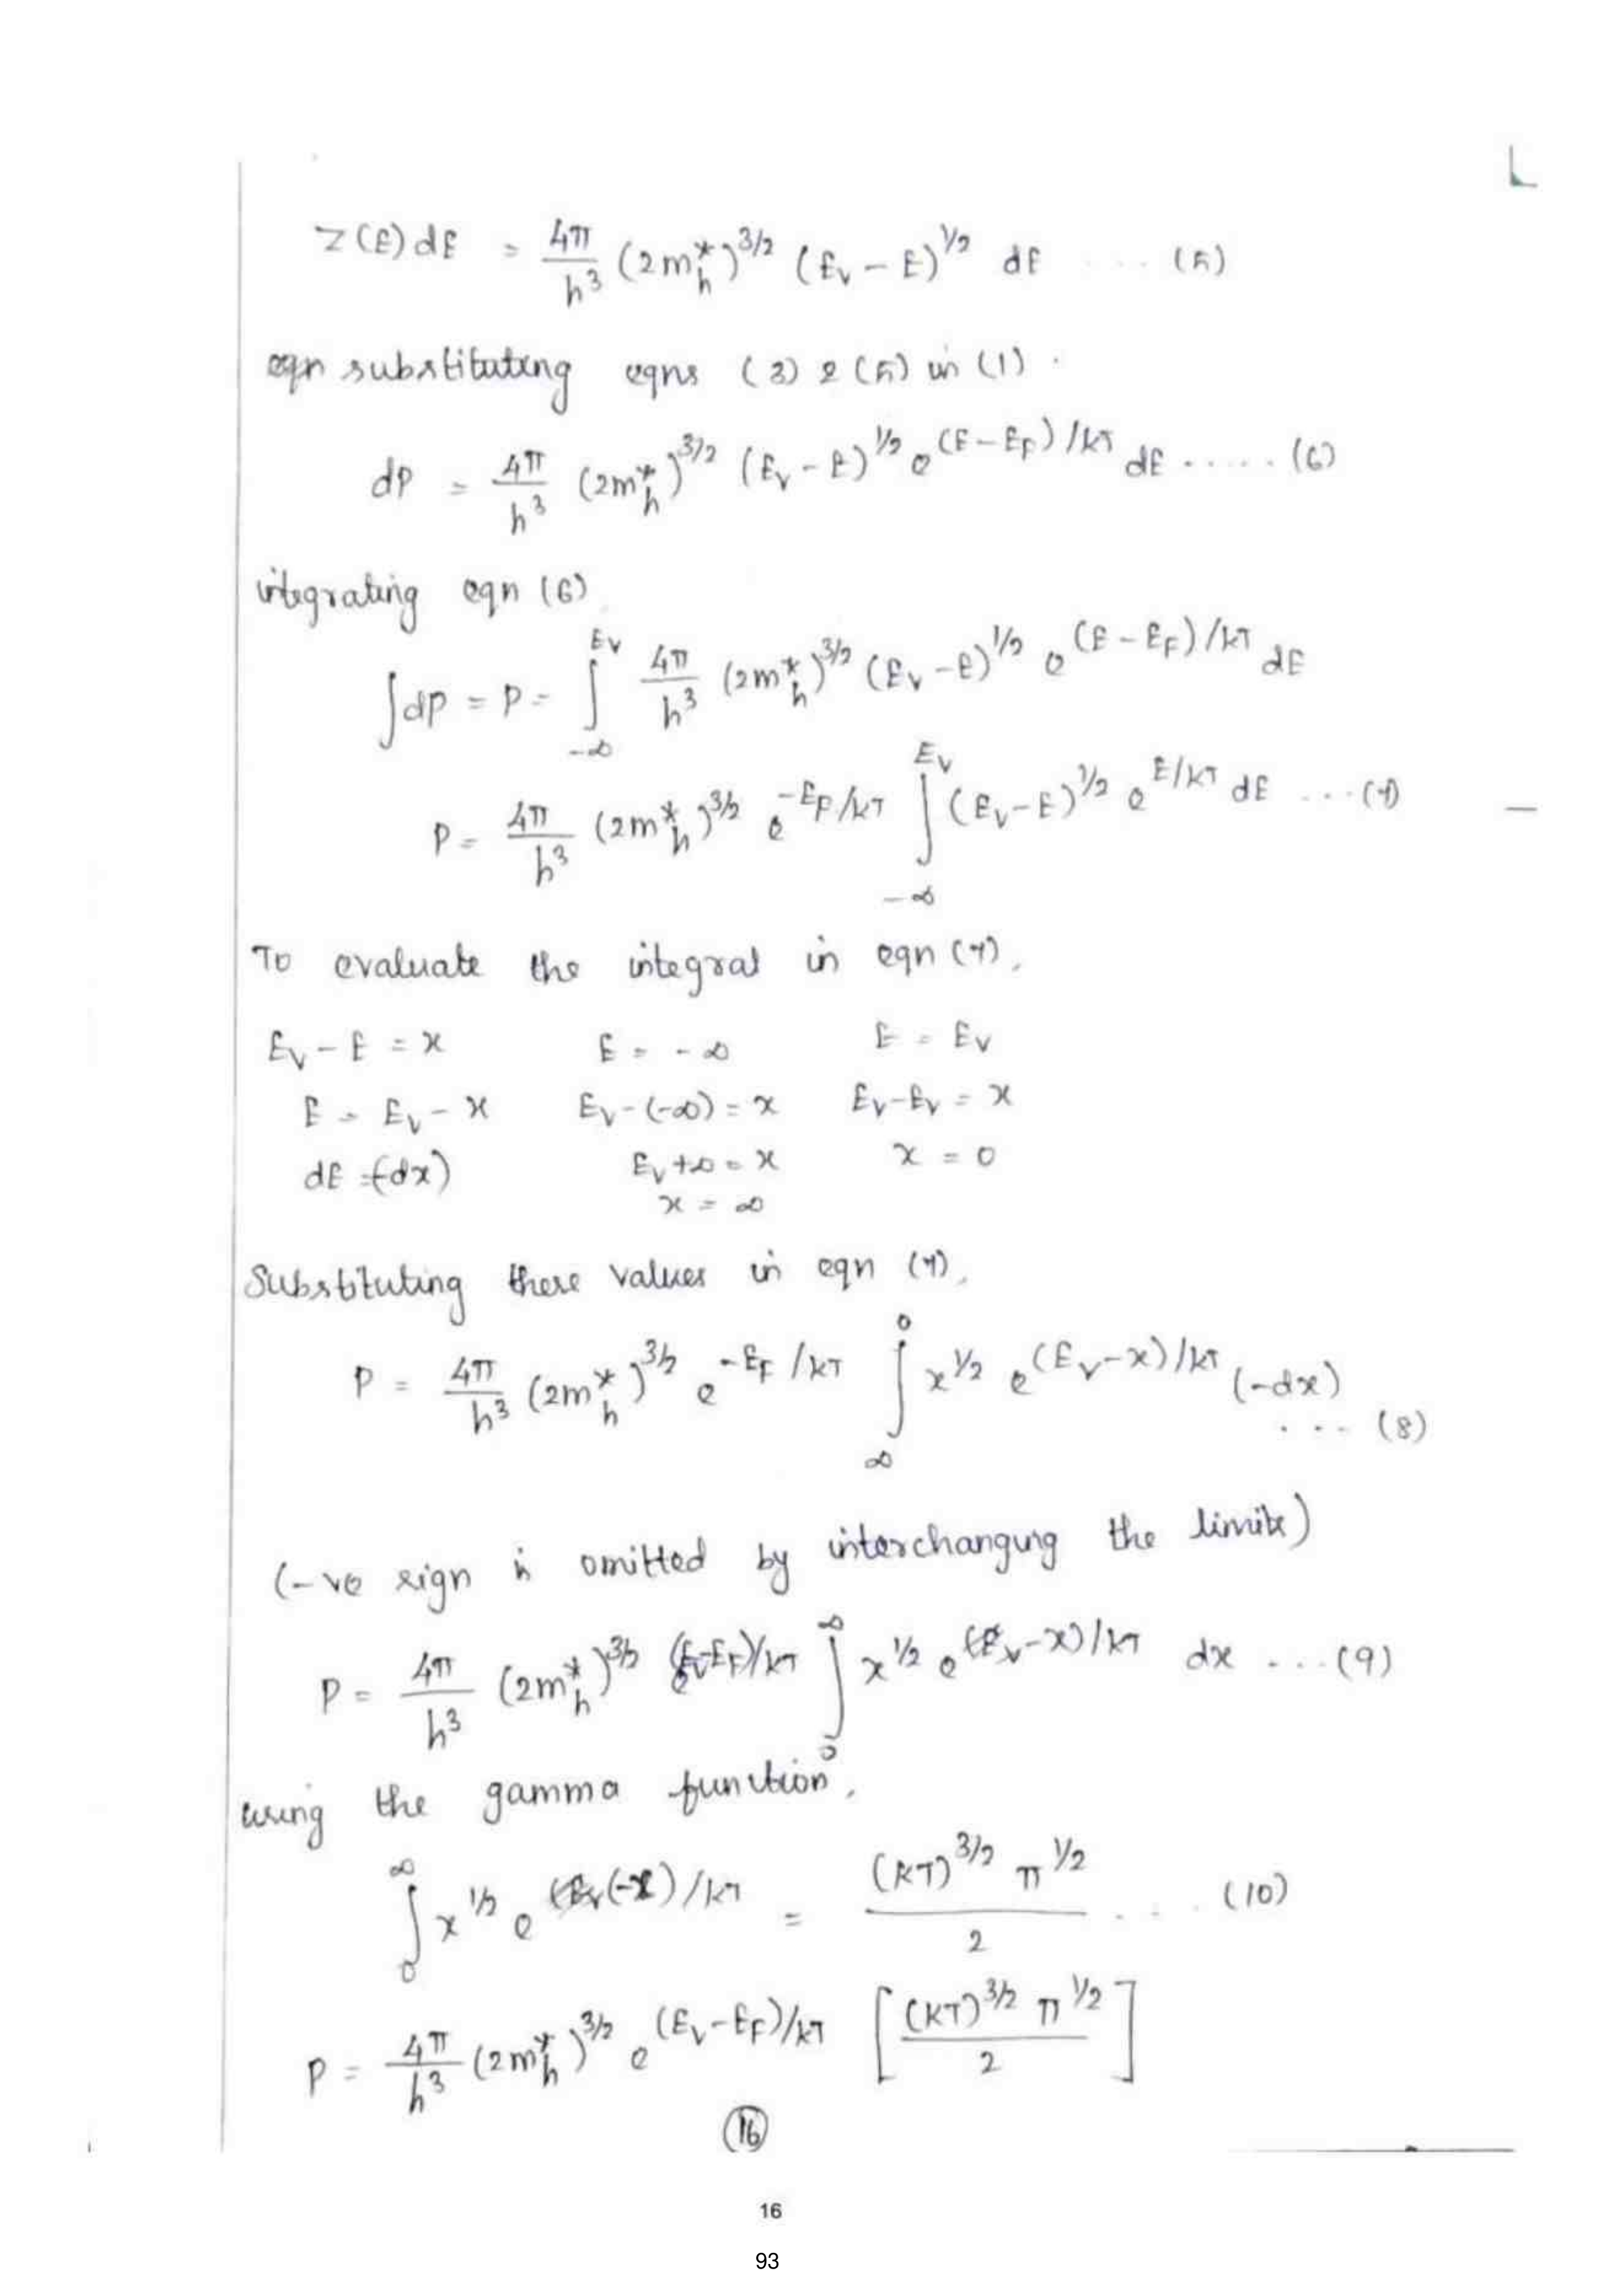 Z(E)dE = 4π/h³ (2m*h)^3/2 (Ev – E)^1/2 dE .... (5)
eqn substituting eqns (3) & (5) in (1).
dP = 4π/h³ (2m*h)^3/2 (Ev – E)^1/2 e^(E–EF)/kT dE ..... (6)
integrating eqn (6)
∫dP = P = ∫_-∞^Ev 4π/h³ (2m*h)^3/2 (Ev – E)^1/2 e^(E–EF)/kT dE
P = 4π/h³ (2m*h)^3/2 e^-EF/kT ∫_-∞^Ev (Ev–E)^1/2 e^E/kT dE ...(7)
To evaluate the integral in eqn (7),
Ev – E = x E = -∞ E = Ev
E = Ev – x Ev-(-∞) = x Ev-Ev = x
dE = (-dx) Ev+∞ = x x = 0
x = ∞
Substituting these values in eqn (7),
P = 4π/h³ (2m*h)^3/2 e^-EF/kT ∫_∞^0 x^1/2 e^(Ev–x)/kT (-dx)
... (8)
(-ve sign is omitted by interchanging the limits)
P = 4π/h³ (2m*h)^3/2 e^(Ev-EF)/kT ∫_0^∞ x^1/2 e^(Ev-x)/kT dx ...(9)
using the gamma function,
∫_0^∞ x^1/2 e^(-x)/kT = (kT)^3/2 π^1/2 / 2 .... (10)
P = 4π/h³ (2m*h)^3/2 e^(Ev-EF)/kT [(kT)^3/2 π^1/2 / 2]
16
16
93